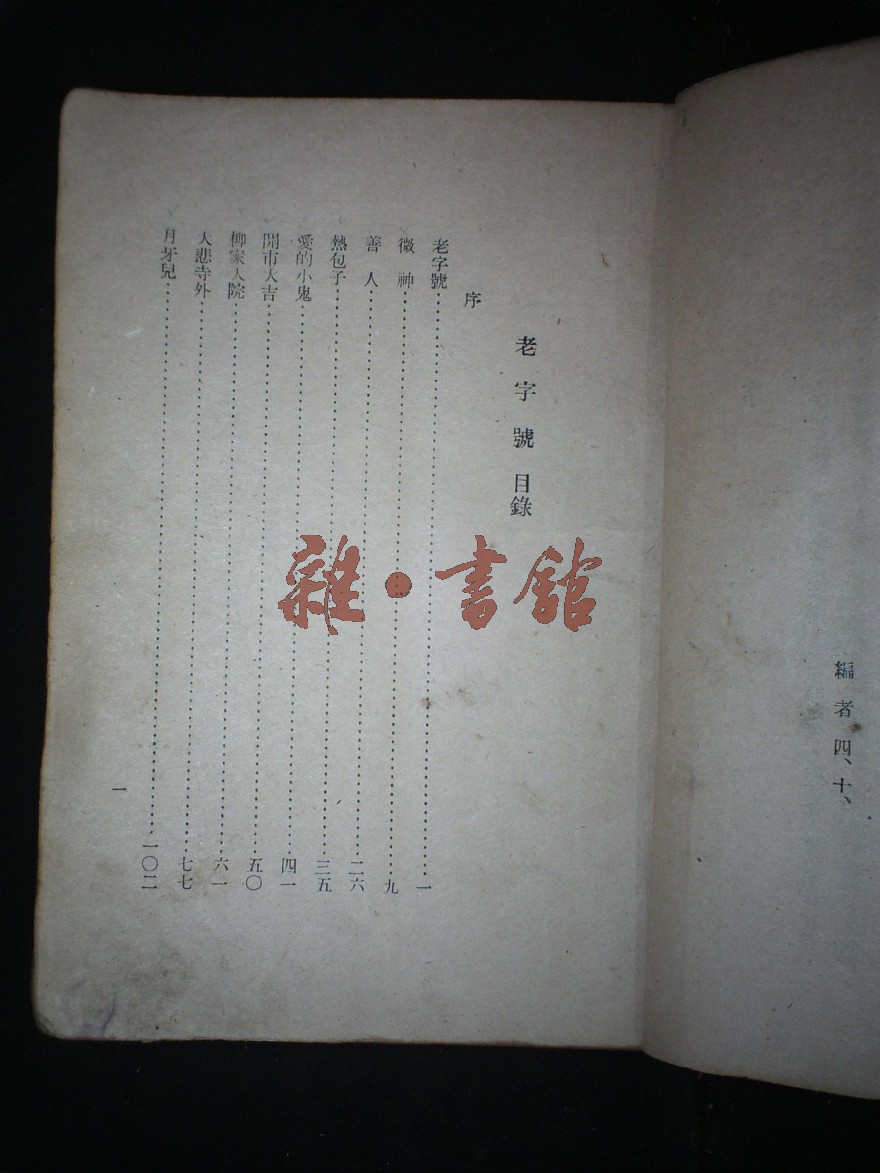 編者四、十、
老字號目錄
序
老字號…………一
微神…………九
善人…………二六
熱包子…………三五
愛的小鬼…………四一
開市大吉…………五〇
柳家大院…………六一
大悲寺外…………七七
月牙兒…………一〇二
一
雜·書館